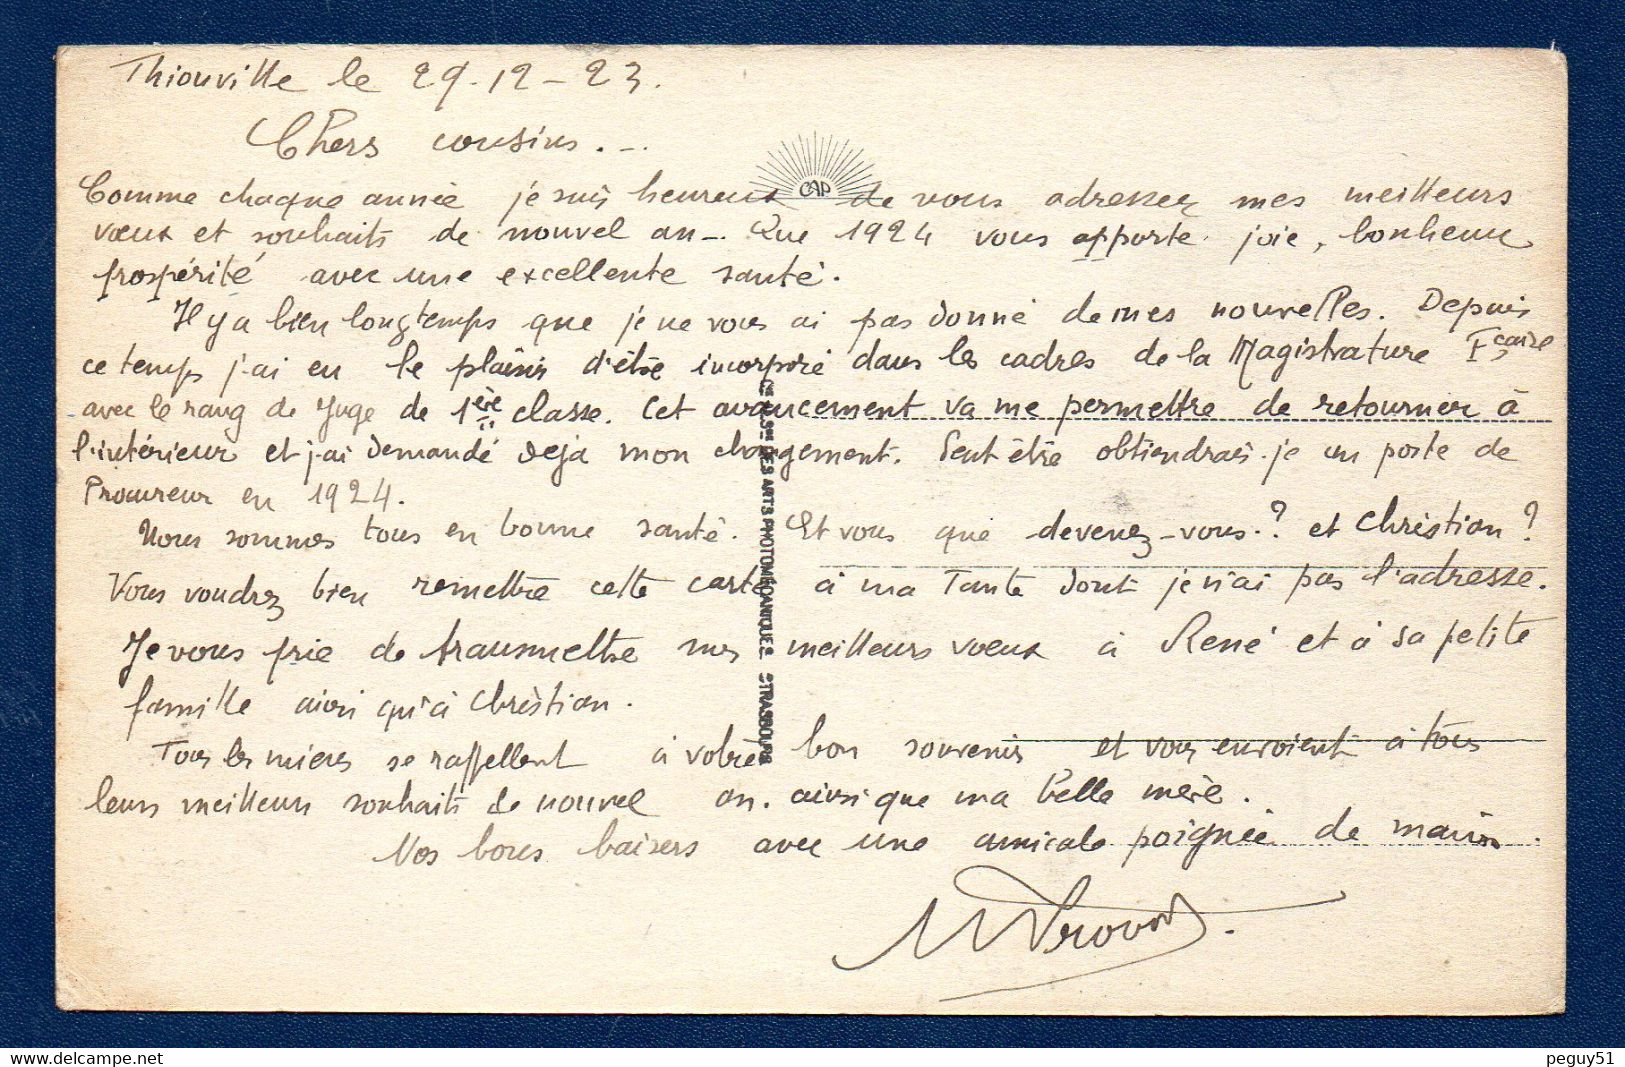 Thionville le 29-12-23.
Chers cousins. --
CAP
Comme chaque année je suis heureux de vous adresser mes meilleurs
vœux et souhaits de nouvel an -. Que 1924 vous apporte joie, bonheur
prospérité avec une excellente santé.
Il y a bien longtemps que je ne vous ai pas donné de mes nouvelles. Depuis
ce temps j'ai eu le plaisir d'être incorporé dans les cadres de la Magistrature Fçaise
avec le rang de Juge de 1ère classe. Cet avancement va me permettre de retourner à
l'intérieur et j'ai demandé déjà mon changement. Peut être obtiendrais-je un poste de
Procureur en 1924.
Nous sommes tous en bonne santé. Et vous que devenez-vous-? et Christian?
Vous voudrez bien remettre cette carte à ma Tante dont je n'ai pas l'adresse.
Je vous prie de transmettre mes meilleurs vœux à René et à sa petite
famille ainsi qu'à Christian.
Tous les miens se rappellent à votre bon souvenir et vous envoient à tous
leurs meilleurs souhaits de nouvel an. ainsi que ma belle mère.
Nos bons baisers avec une amicale poignée de main.
Cie DES ARTS PHOTOMÉCANIQUES STRASBOURG
peguy51